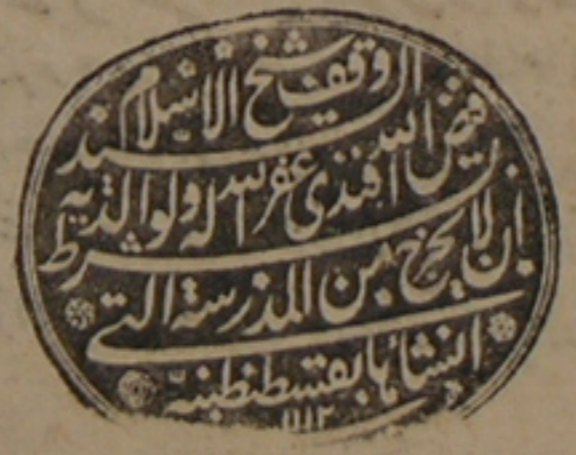 وقف شيخ الاسلام السيد
فيض الله افندى غفر الله له ولوالديه بشرط
ان لا يخرج من المدرسة التى
انشاها بقسطنطنيه
١١١٢